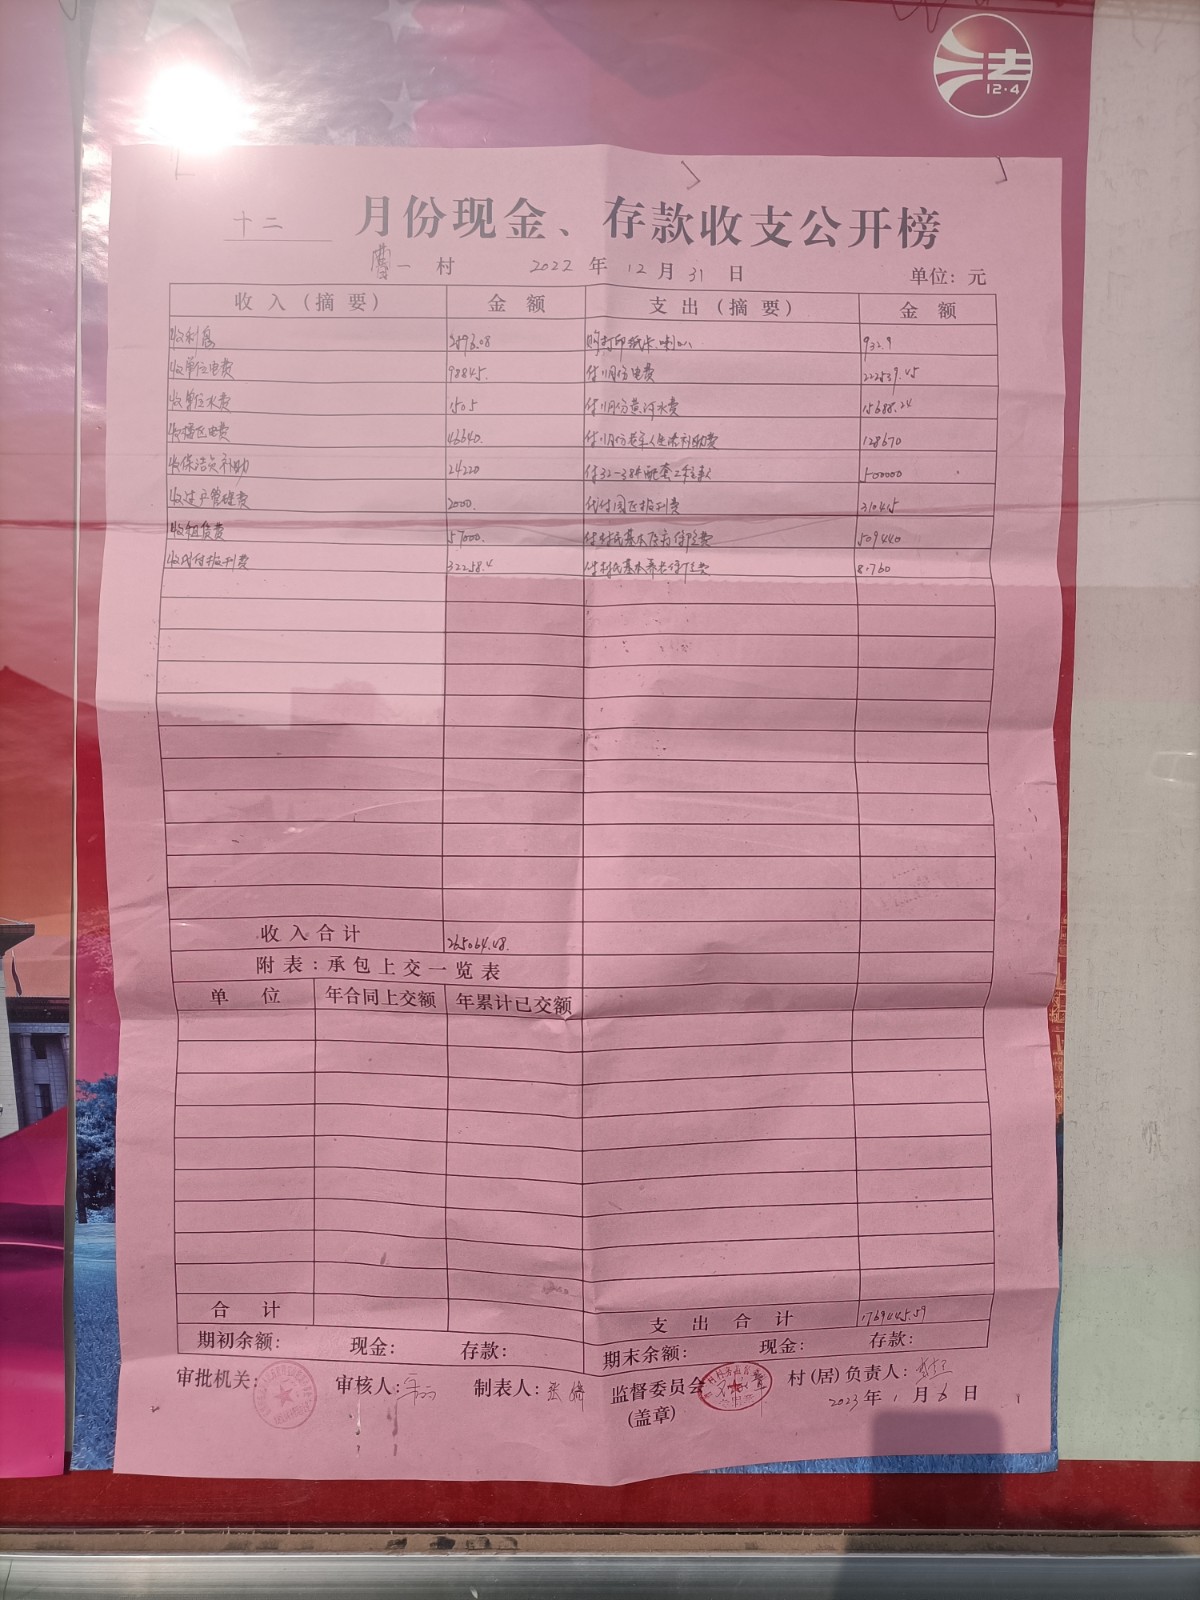 法
12·4
十二 月份现金、存款收支公开榜
曹一 村 2022 年 12 月 31 日 单位：元
收入（摘要） 金额 支出（摘要） 金额
收利息 2596.08 购打印纸卡.喇叭 932.9
收单位电费 98845. 付11月份电费 222539.45
收单位水费 1505 付11月份黄河水费 15688.24
收楼区电费 46640. 付11月份老年人生活补助费 128670
收保洁员补助 24220 付32-38#配套工程款 500000
收过户管理费 2000. 代付园区报刊费 310415
收租赁费 57000. 付村民基本医疗保险费 509440
收代付报刊费 32258.4 付村民基本养老保险费 81760
收入合计 265064.48.
附表：承包上交一览表
单位 年合同上交额 年累计已交额
合计 支出合计 1769445.59
期初余额： 现金： 存款： 期末余额： 现金： 存款：
审批机关： 审核人： 制表人： 张婷 监督委员会 村（居）负责人：
（盖章） 2023 年 1 月 6 日